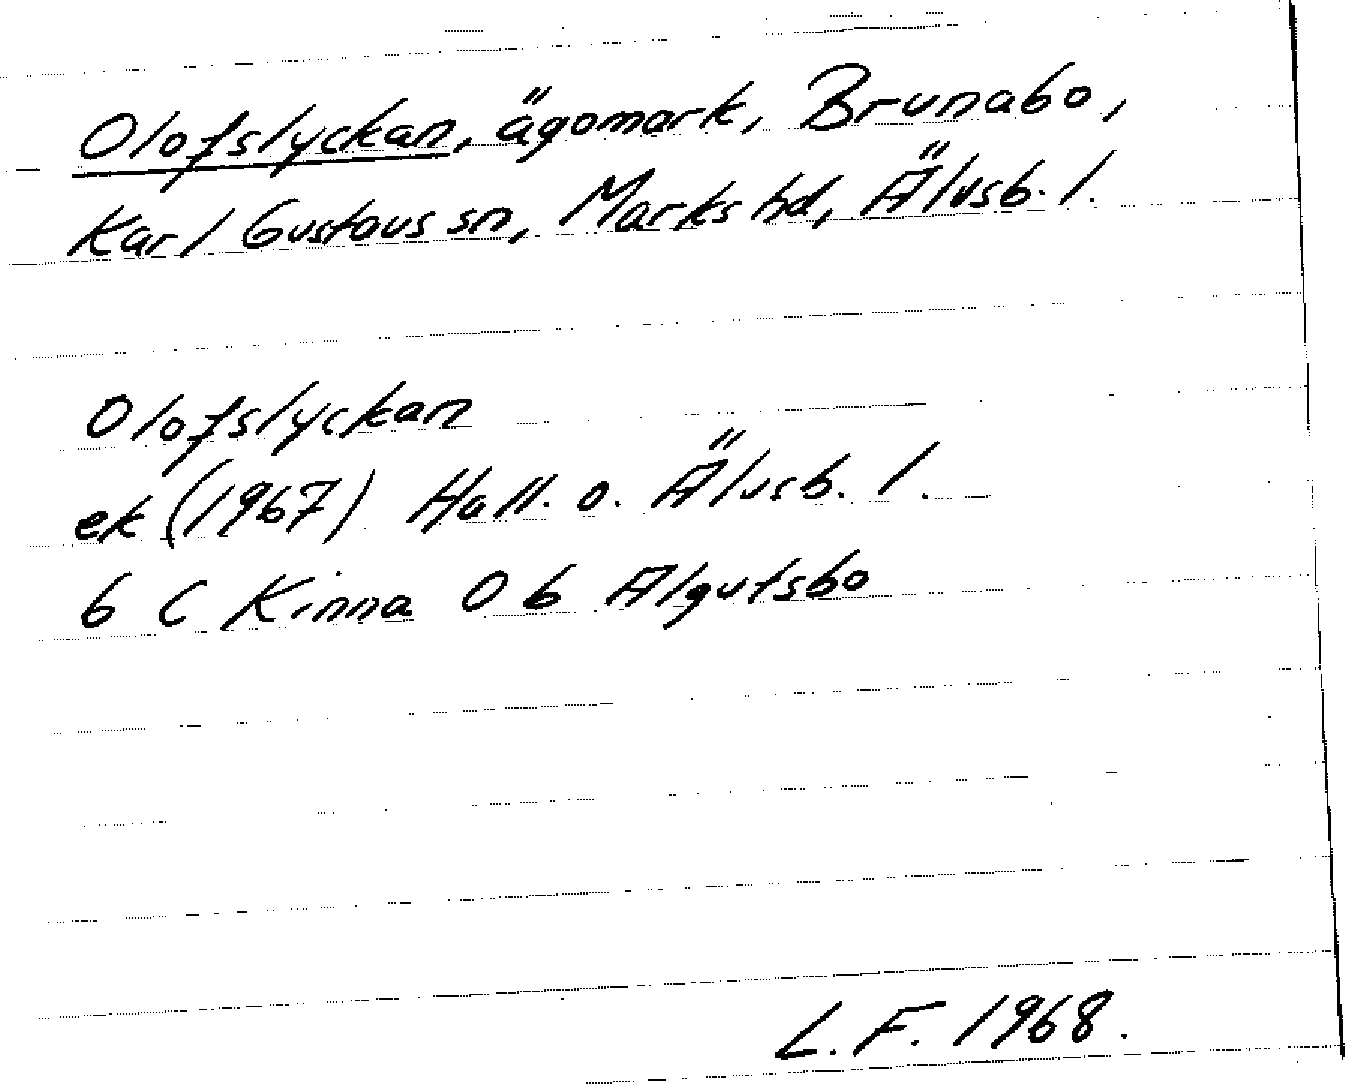 Olofslyckan, ägomark, Brunabo,
Karl Gustavs sn, Marks hd, Älvsb. l.
Olofslyckan
ek (1967) Hall. o. Älvsb. l.
6 C Kinna 0 b Algutsbo
L. F. 1968.